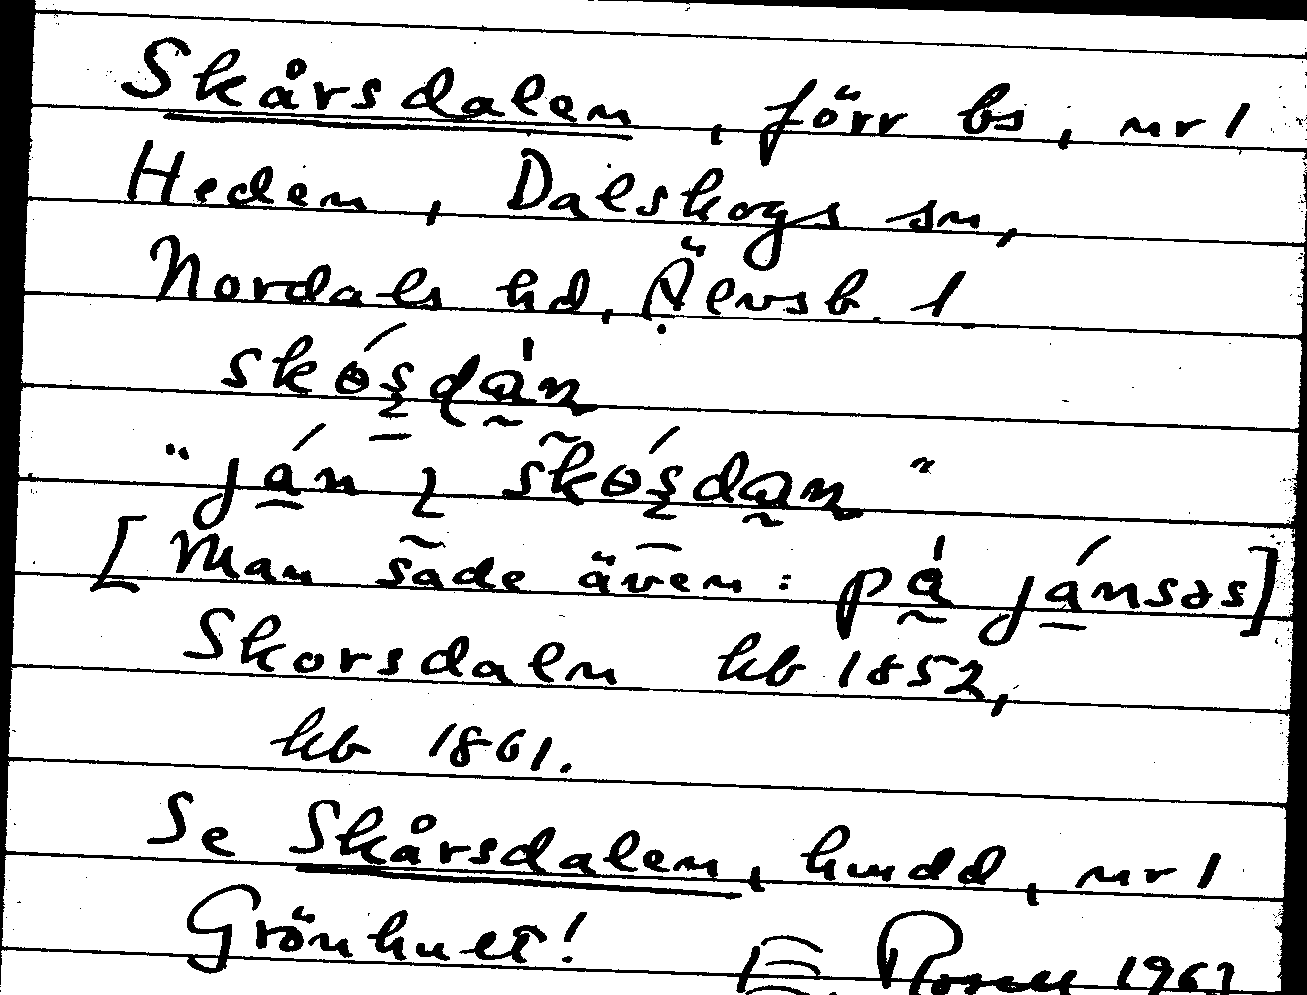 Skårsdalen, förr bs, nr 1
Heden, Dalskogs sn,
Nordals hd, Älvsb. l.
skóşdàn
"ján ı skóşdan"
[Man sade även: pà jánsəs]
Skorsdaln kb 1852,
kb 1861.
Se Skårsdalen, hmdd, nr 1
Grönhult!